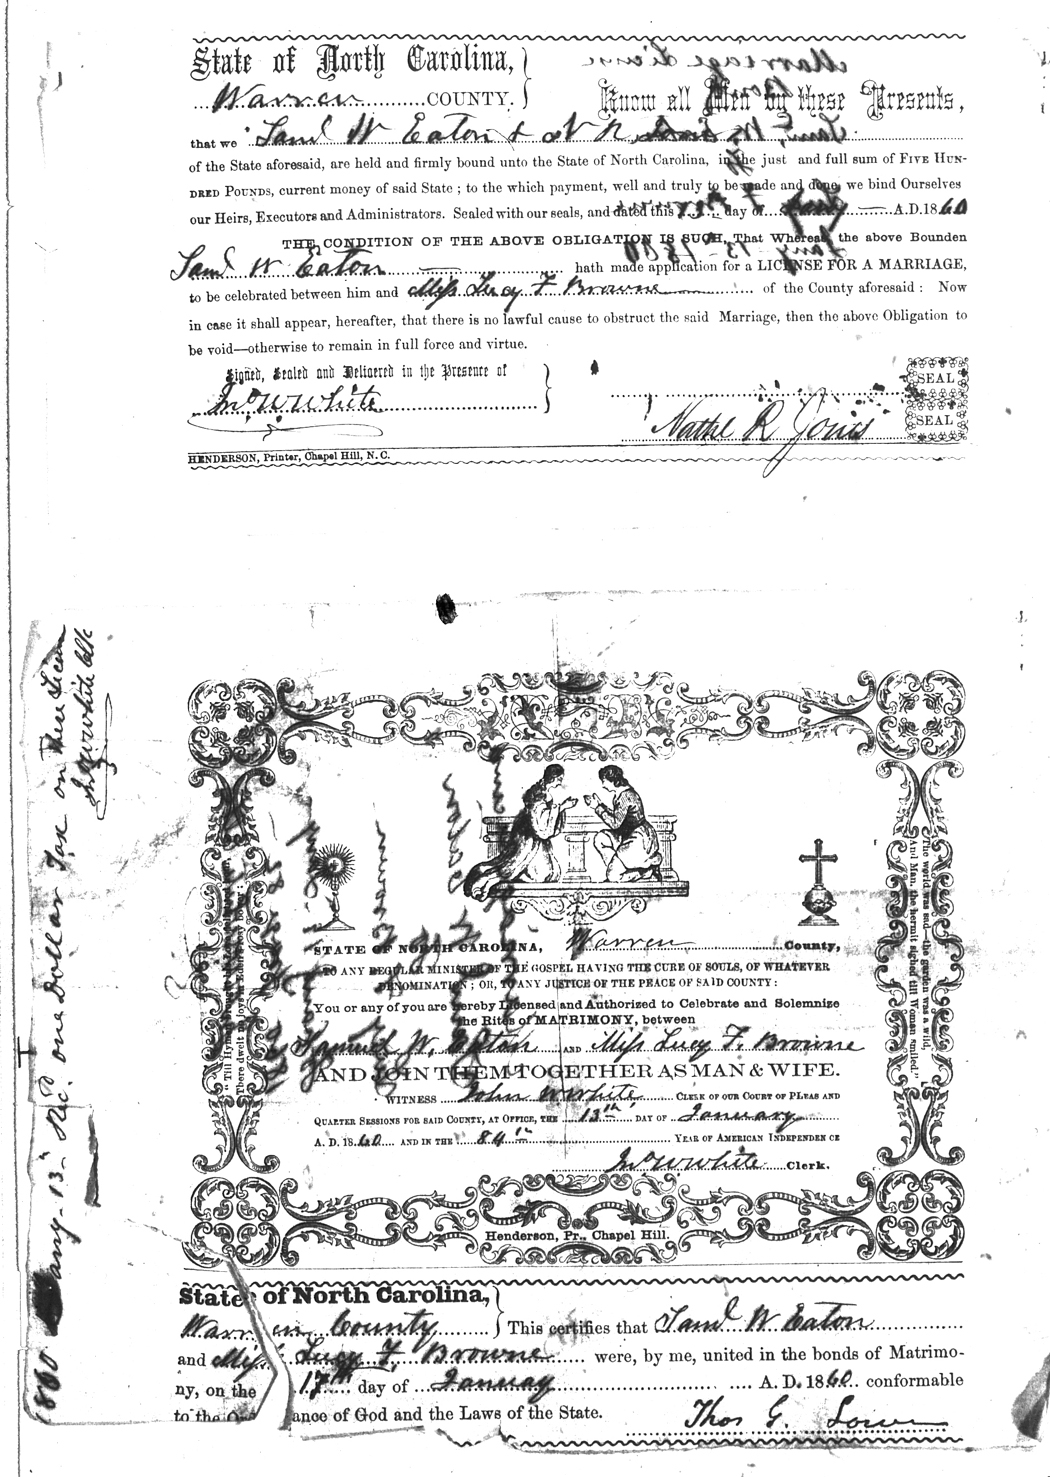 State of North Carolina,
Warren COUNTY.
Know all Men by these Presents,
that we Saml W Eaton & N R
of the State aforesaid, are held and firmly bound unto the State of North Carolina, in the just and full sum of FIVE HUN-
DRED POUNDS, current money of said State ; to the which payment, well and truly to be made and done, we bind Ourselves
our Heirs, Executors and Administrators. Sealed with our seals, and dated this day of Jany A.D. 1860
THE CONDITION OF THE ABOVE OBLIGATION IS SUCH, That Whereas, the above Bounden
Saml W Eaton hath made application for a LICENSE FOR A MARRIAGE,
to be celebrated between him and Miss Lucy F Browne of the County aforesaid : Now
in case it shall appear, hereafter, that there is no lawful cause to obstruct the said Marriage, then the above Obligation to
be void—otherwise to remain in full force and virtue.
Signed, Sealed and Delivered in the Presence of
SEAL
Jno W White
Nathl R Jones
SEAL
HENDERSON, Printer, Chapel Hill, N. C.
1860 Jany 13th Recd. one Dollar Tax on this License
Jno W White Clk
"Till Hymen brought
There dwelt no joy in Eden's rosy bower ;
The world was sad—the garden was a wild,
And Man, the hermit sighed till Woman smiled."
STATE OF NORTH CAROLINA, Warren County,
TO ANY REGULAR MINISTER OF THE GOSPEL HAVING THE CURE OF SOULS, OF WHATEVER
DENOMINATION ; OR, TO ANY JUSTICE OF THE PEACE OF SAID COUNTY :
You or any of you are hereby Licensed and Authorized to Celebrate and Solemnize
the Rites of MATRIMONY, between
Samuel W. Eaton AND Miss Lucy F. Browne
AND JOIN THEM TOGETHER AS MAN & WIFE.
WITNESS John W White CLERK OF OUR COURT OF PLEAS AND
QUARTER SESSIONS FOR SAID COUNTY, AT OFFICE, THE 13th DAY OF January
A. D. 1860 AND IN THE 84th YEAR OF AMERICAN INDEPENDENCE
Jno W White Clerk.
Henderson, Pr., Chapel Hill.
State of North Carolina,
Warren County This certifies that Saml W Eaton
and Miss Lucy F. Browne were, by me, united in the bonds of Matrimo-
ny, on the 17th day of January A. D. 1860 conformable
to the ance of God and the Laws of the State.
Thos G.